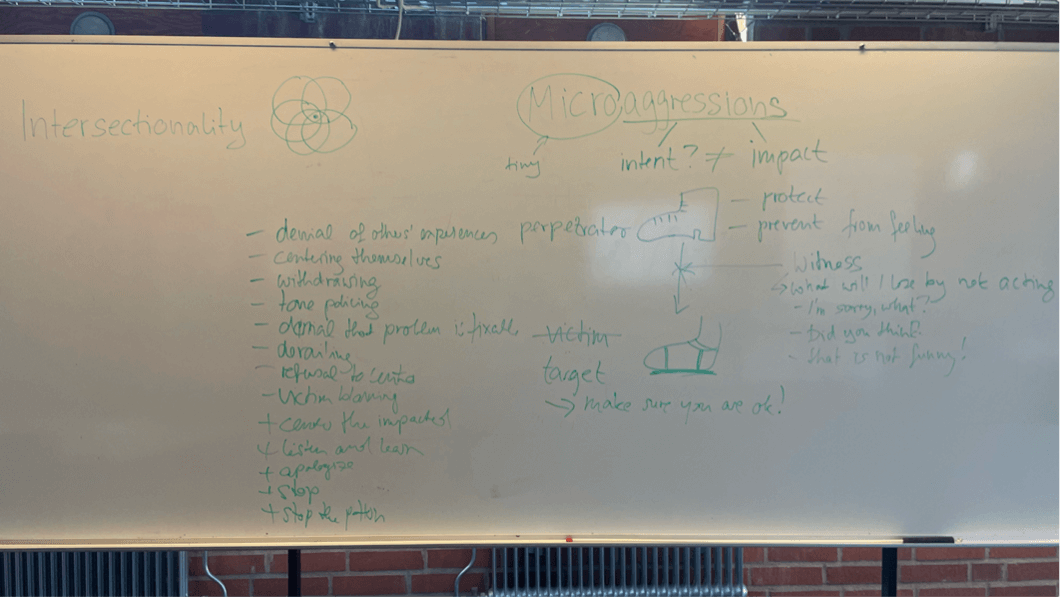 Intersectionality
Microaggressions
tiny
intent? ≠ impact
- denial of others' experiences
- centering themselves
- withdrawing
- tone policing
- denial that problem is fixable
- derailing
- refusal to
- victim blaming
+ center the impacted
+ listen and learn
+ apologize
+ stop
+ stop the pattern
perpetrator
- protect
- prevent from feeling
witness
↳ what will I lose by not acting
- I'm sorry, what?
- Did you think?
- that is not funny!
victim
target
→ make sure you are ok!